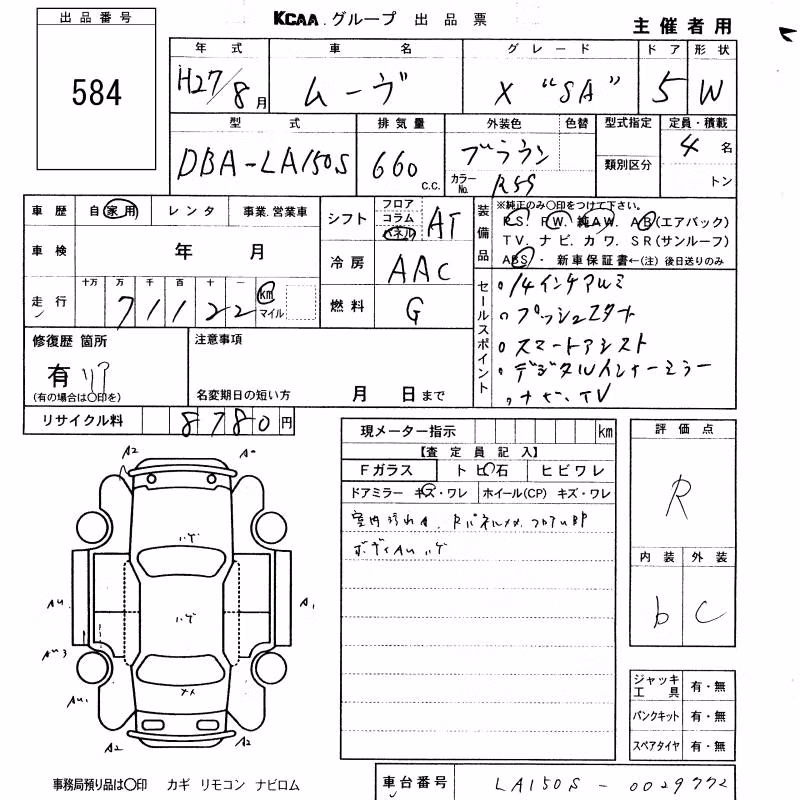 出品番号
584
KCAA.グループ 出品票
主催者用
年式 車名 グレード ドア 形状
H27/8月 ムーヴ X "SA" 5 W
型式 排気量 外装色 色替 型式指定 定員・積載
DBA-LA150S 660 c.c. ブラウン 4名
カラーNo. R59 類別区分 トン
車歴 自家用 レンタ 事業.営業車
車検 年 月
走行 十万 万 千 百 十 一
7 1 1 2 2 km マイル
シフト フロア コラム パネル AT
冷房 AAC
燃料 G
装備品
※純正のみ〇印をつけて下さい。
PS. PW. 純AW. AB(エアバック)
TV. ナビ. カワ. SR(サンルーフ)
ABS・ 新車保証書←(注)後日送りのみ
セールスポイント
14インチアルミ
プッシュスタート
スマートアシスト
デジタルインナーミラー
ナビ、TV
修復歴 箇所
有 リア
(有の場合は〇印を)
注意事項
名変期日の短い方 月 日まで
リサイクル料 8780円
現メーター指示 km
【査定員記入】
Fガラス トビ石 ヒビワレ
ドアミラー キズ・ワレ ホイール(CP) キズ・ワレ
室内汚れA. Rパネルメメ. フロアuBP
ボディAuハゲ
評価点
R
内装 外装
b C
ジャッキ 工具 有・無
パンクキット 有・無
スペアタイヤ 有・無
A2
ハゲ
Au
ハゲ
A1
Au3
Au1
メメ
A2 A2
事務局預り品は〇印 カギ リモコン ナビロム
車台番号 LA150S-0029772